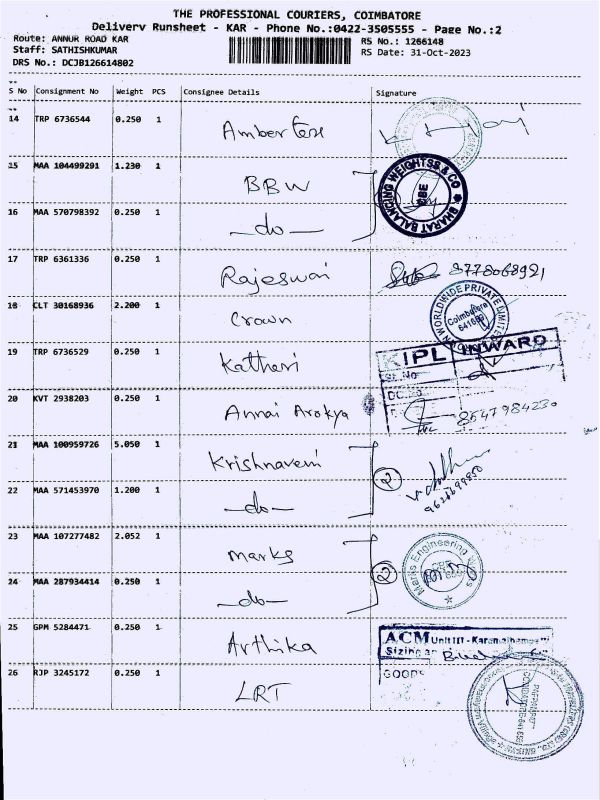 THE PROFESSIONAL COURIERS, COIMBATORE
Delivery Runsheet - KAR - Phone No.:0422-3505555 - Page No.:2
Route: ANNUR ROAD KAR
RS No.: 1266148
Staff: SATHISHKUMAR
RS Date: 31-Oct-2023
DRS No.: DCJB126614802
S No Consignment No Weight PCS Consignee Details Signature
14 TRP 6736544 0.250 1 Amber Tex
15 MAA 104499291 1.230 1 BBW
BHARAT BALANCING WEIGHTSS & CO
BBE
16 MAA 570798392 0.250 1 —do—
17 TRP 6361336 0.250 1 Rajeswari 8778068921
18 CLT 30168936 2.200 1 Crown
WORLDWIDE PRIVATE LIMITED
Coimbatore
19 TRP 6736529 0.250 1 Katheri
KIPL INWARD
SL.No
DC.No
20 KVT 2938203 0.250 1 Annai Arokya 8547984230
21 MAA 100959726 5.050 1 Krishnaveni
2
22 MAA 571453970 1.200 1 —do—
23 MAA 107277482 2.052 1 Marks
2
Marks Engineering
24 MAA 287934414 0.250 1 —do—
25 GPM 5284471 0.250 1 Arthika
ACM Unit III - Karamathampatti
Sizing
26 RJP 3245172 0.250 1 LRT
GOODS